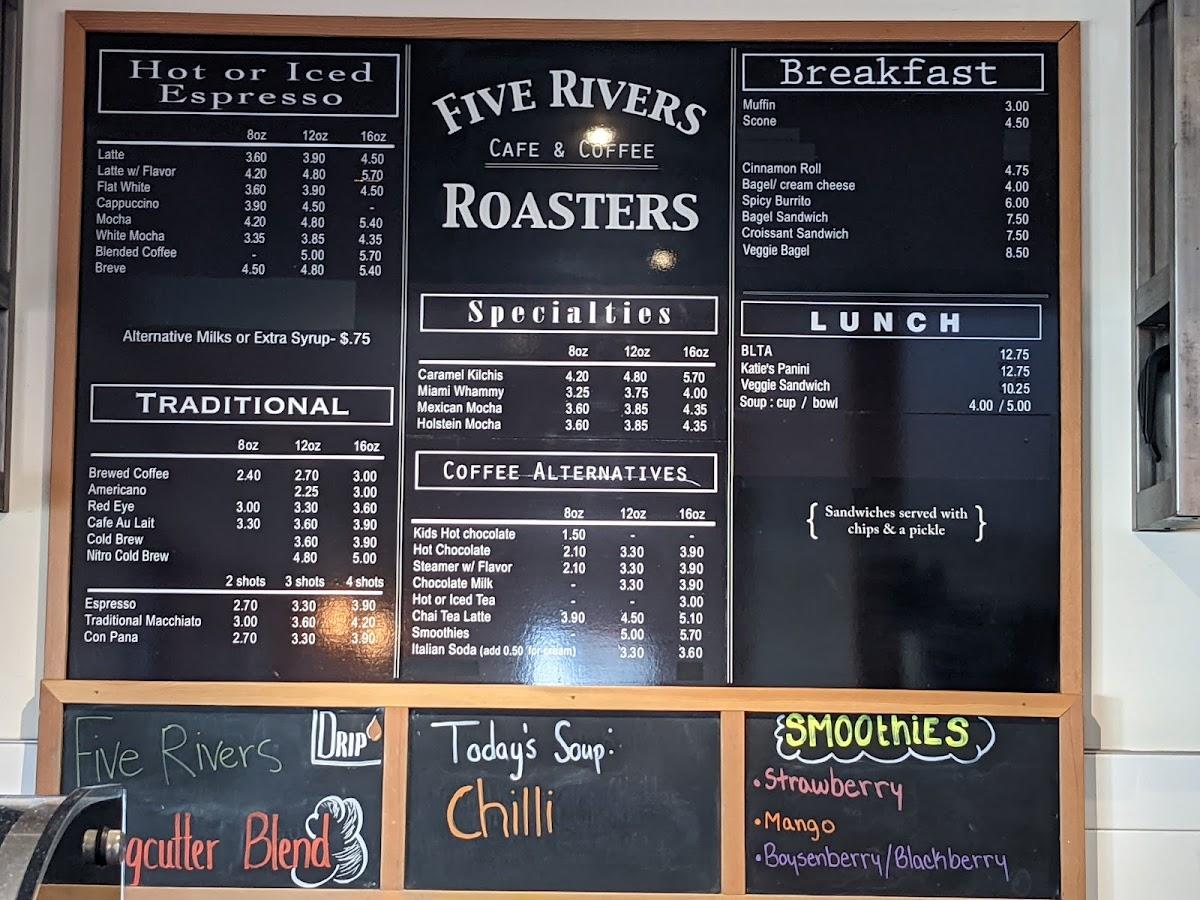 Hot or Iced
Espresso
8oz 12oz 16oz
Latte 3.60 3.90 4.50
Latte w/ Flavor 4.20 4.80 5.70
Flat White 3.60 3.90 4.50
Cappuccino 3.90 4.50 -
Mocha 4.20 4.80 5.40
White Mocha 3.35 3.85 4.35
Blended Coffee - 5.00 5.70
Breve 4.50 4.80 5.40
Alternative Milks or Extra Syrup- $.75
TRADITIONAL
8oz 12oz 16oz
Brewed Coffee 2.40 2.70 3.00
Americano 2.25 3.00
Red Eye 3.00 3.30 3.60
Cafe Au Lait 3.30 3.60 3.90
Cold Brew 3.60 3.90
Nitro Cold Brew 4.80 5.00
2 shots 3 shots 4 shots
Espresso 2.70 3.30 3.90
Traditional Macchiato 3.00 3.60 4.20
Con Pana 2.70 3.30 3.90
FIVE RIVERS
CAFE & COFFEE
ROASTERS
Specialties
8oz 12oz 16oz
Caramel Kilchis 4.20 4.80 5.70
Miami Whammy 3.25 3.75 4.00
Mexican Mocha 3.60 3.85 4.35
Holstein Mocha 3.60 3.85 4.35
COFFEE ALTERNATIVES
8oz 12oz 16oz
Kids Hot chocolate 1.50 - -
Hot Chocolate 2.10 3.30 3.90
Steamer w/ Flavor 2.10 3.30 3.90
Chocolate Milk - 3.30 3.90
Hot or Iced Tea - - 3.00
Chai Tea Latte 3.90 4.50 5.10
Smoothies - 5.00 5.70
Italian Soda (add 0.50 for cream) 3.30 3.60
Breakfast
Muffin 3.00
Scone 4.50
Cinnamon Roll 4.75
Bagel/ cream cheese 4.00
Spicy Burrito 6.00
Bagel Sandwich 7.50
Croissant Sandwich 7.50
Veggie Bagel 8.50
LUNCH
BLTA 12.75
Katie's Panini 12.75
Veggie Sandwich 10.25
Soup : cup / bowl 4.00 / 5.00
{ Sandwiches served with
chips & a pickle }
Five Rivers DRIP
gcutter Blend
Today's Soup:
Chilli
SMOOthiES
•Strawberry
•Mango
•Boysenberry/Blackberry